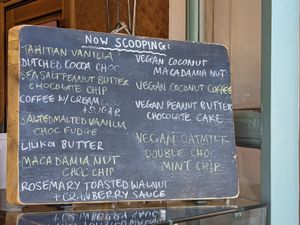 NOW SCOOPING:
TAHITIAN VANILLA
DUTCHED COCOA CHOC
SEA SALT PEANUT BUTTER
CHOCOLATE CHIP
COFFEE W/ CREAM
+ SUGAR
SALTED MALTED VANILLA
CHOC FUDGE
LILIKOI BUTTER
MACADAMIA NUT
CHOC CHIP
ROSEMARY TOASTED WALNUT
+ CRANBERRY SAUCE
VEGAN COCONUT
MACADAMIA NUT
VEGAN COCONUT COFFEE
VEGAN PEANUT BUTTER
CHOCOLATE CAKE
VEGAN OATMILK
DOUBLE CHOC
MINT CHIP